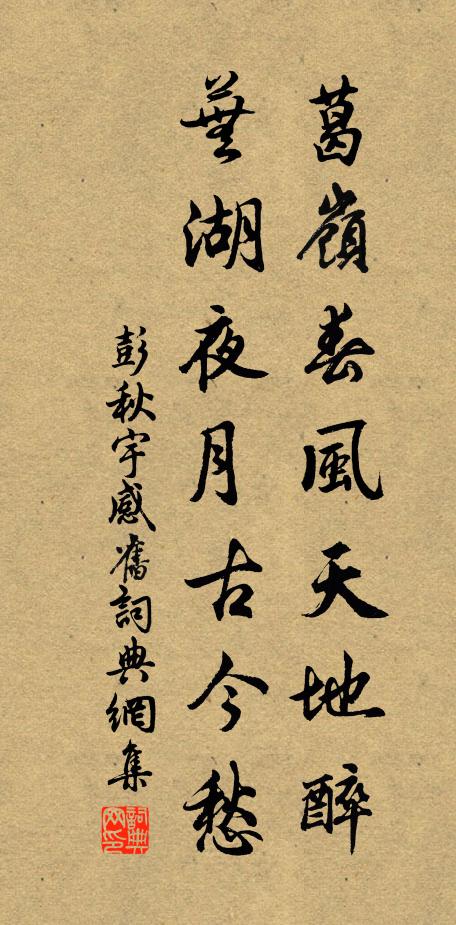 葛嶺春風天地醉
蕪湖夜月古今愁
彭秋宇感舊詞典網集
詞典網印